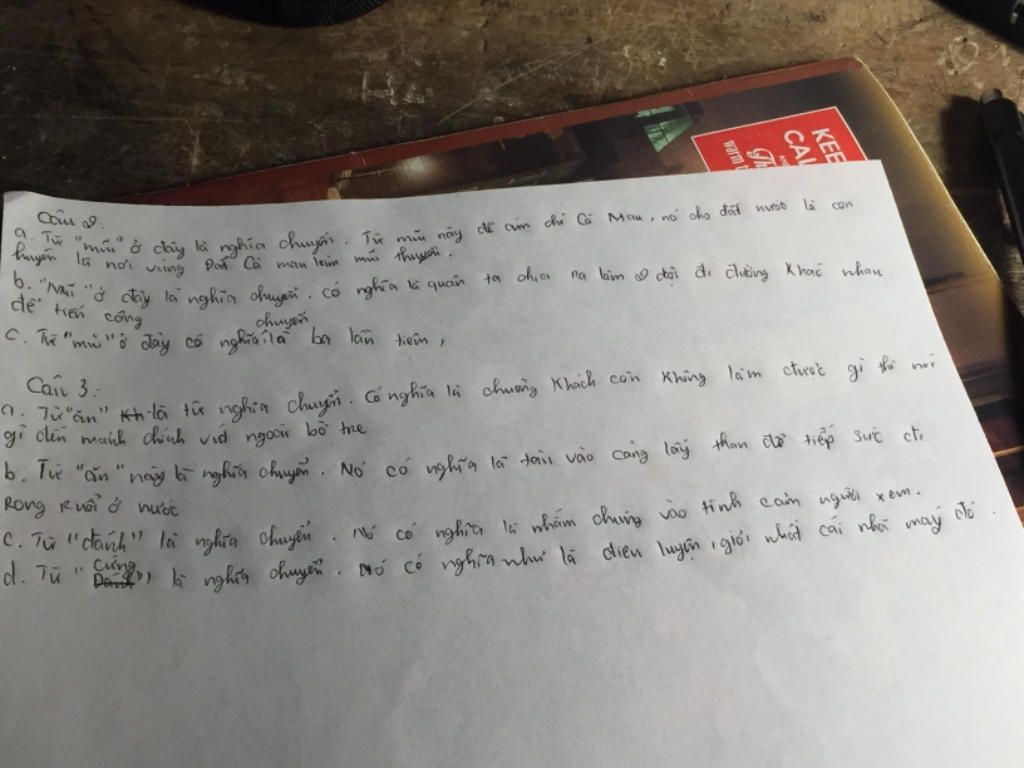 KEE
CAL
Th
warm
Câu 2:
a. Từ "mũi" ở đây là nghĩa chuyển. Từ mũi này để ám chỉ Cà Mau, nó cho đất nước là con
thuyền là nơi vùng Đất Cà mau làm mũi thuyền.
b. "Mũi" ở đây là nghĩa chuyển. Có nghĩa là quân ta chia ra làm 2 đội đi đường khác nhau
để tiến công
chuyển
c. Từ "mũi" ở đây có nghĩa là ba lần tiêm,
Câu 3:
a. Từ "ăn" là từ nghĩa chuyển. Có nghĩa là chuang khách còn không làm được gì thì nói
gì đến mành chành với ngoài bờ tre
b. Từ "ăn" này là nghĩa chuyển. Nó có nghĩa là tàu vào cảng lấy than để tiếp sức đi
Rong ruổi ở nước
c. Từ "đánh" là nghĩa chuyển. Nó có nghĩa là nhắm chúng vào tình cảm người xem.
d. Từ "Cứng" là nghĩa chuyển. Nó có nghĩa như là điêu luyện, giỏi nhất cái nhà máy đó.